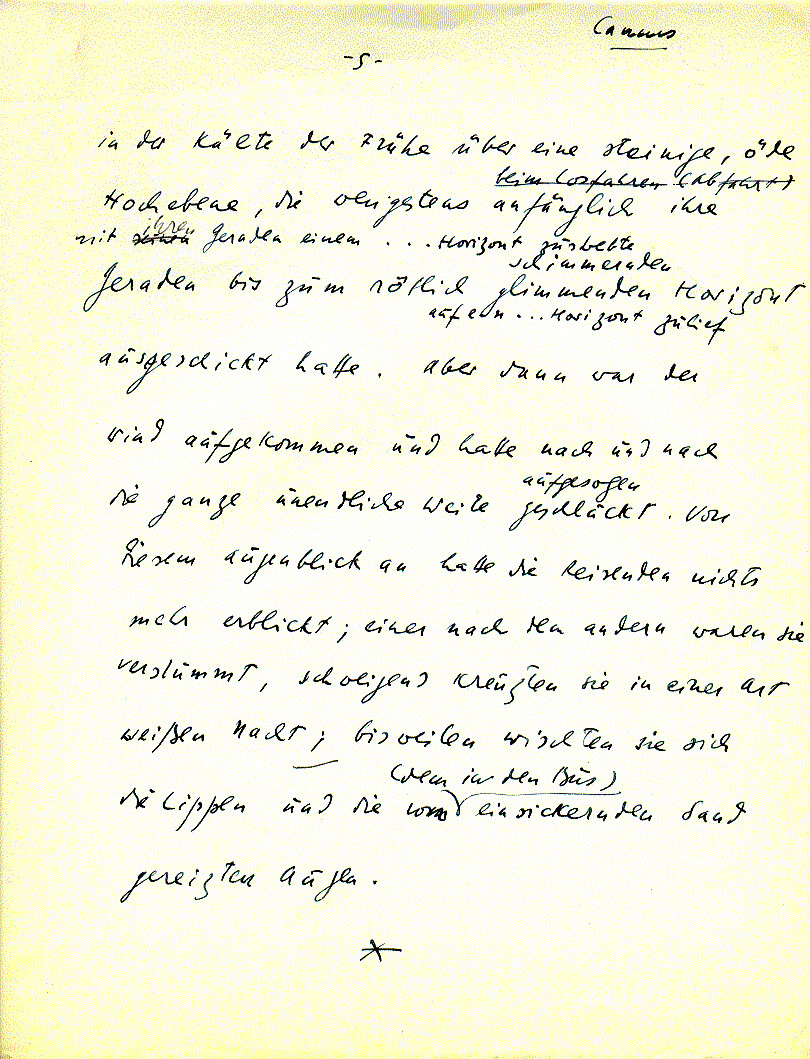 Camus
-5-
in der Kälte der Frühe über eine steinige, öde
beim Losfahren (Abfahrt)
Hochebene, die wenigstens anfänglich ihre
ihren
mit seinen Geraden einem ... Horizont zustrebte
schimmernden
Geraden bis zum rötlich glimmenden Horizont
auf ein ... Horizont zulief
ausgeschickt hatte. Aber dann war der
Wind aufgekommen und hatte nach und nach
aufgesogen
die ganze unendliche Weite geschluckt. Von
diesem Augenblick an hatte die Reisenden nichts
mehr erblickt; einer nach dem andern waren sie
verstummt, schweigend kreuzten sie in einer Art
weißen Nacht; bisweilen wischten sie sich
(dem in den Bus)
die Lippen und die vom einsickernden Sand
gereizten Augen.
*